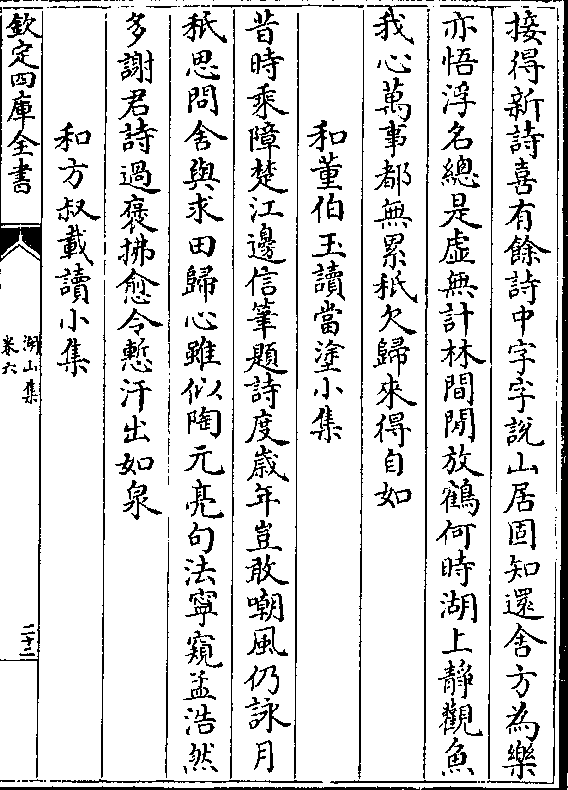 接得新詩喜有餘詩中字字說山居固知還舍方為樂
亦悟浮名總是虛無計林間閒放鶴何時湖上靜觀魚
我心萬事都無累秪欠歸來得自如
和董伯玉讀當塗小集
昔時乘障楚江邊信筆題詩度歲年豈敢嘲風仍詠月
秪思問舍與求田歸心雖似陶元亮句法寧窺孟浩然
多謝君詩過褒拂愈令慙汗出如泉
和方叔載讀小集
欽定四庫全書
湖山集
卷六
二十二